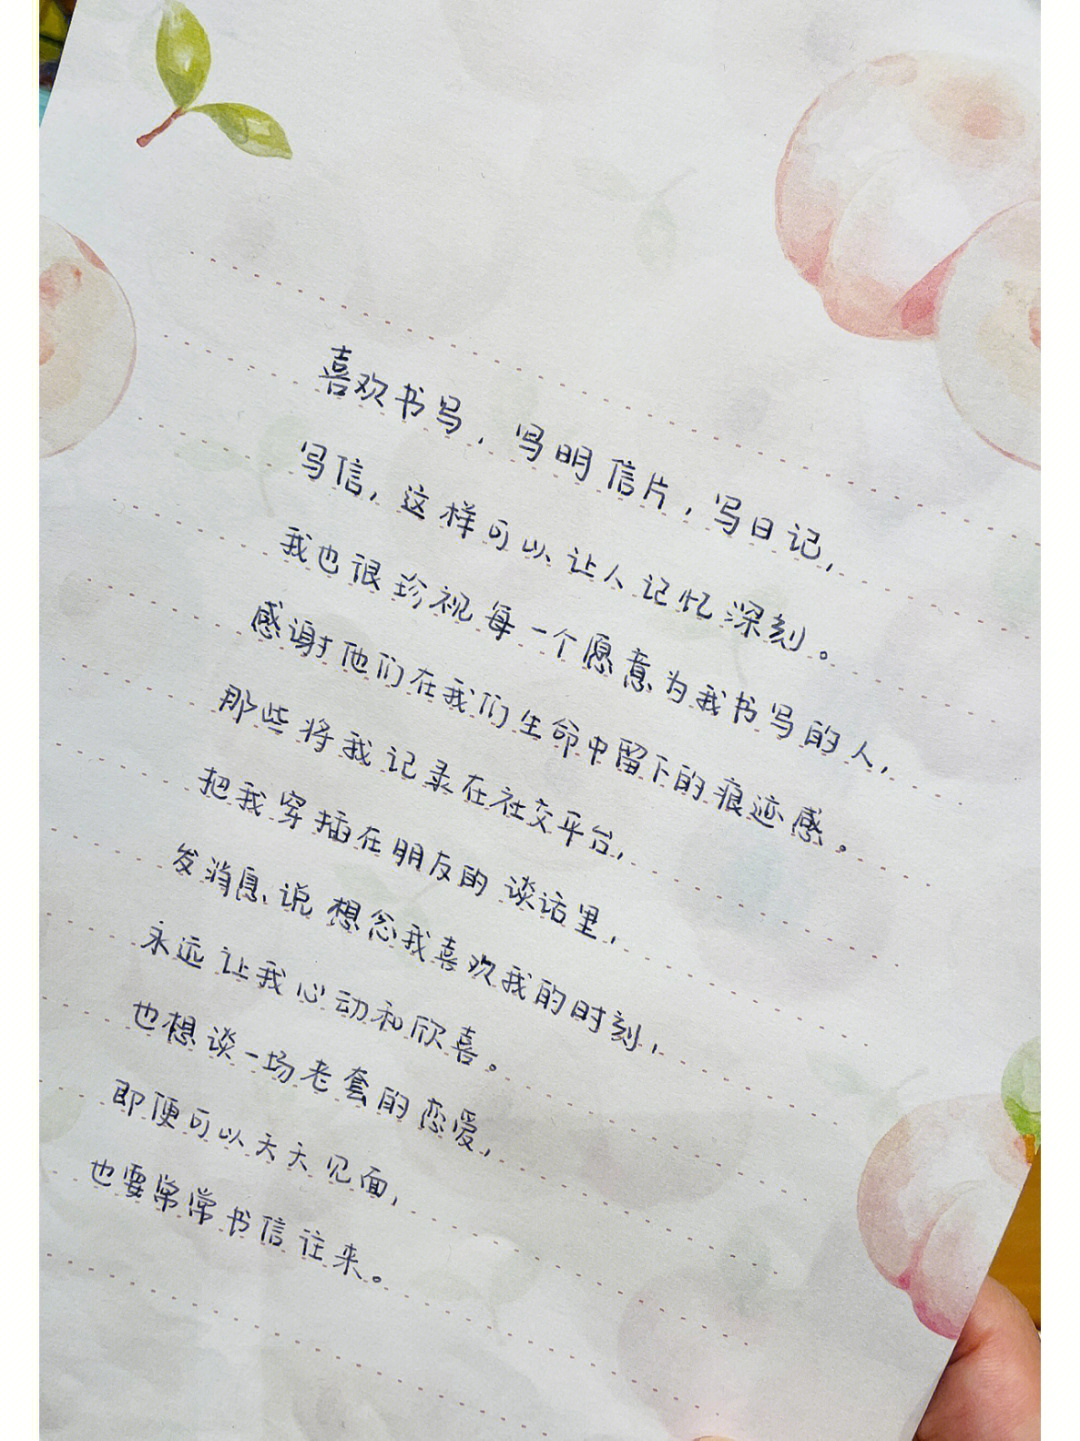 喜欢书写，写明信片，写日记，
写信，这样可以让人记忆深刻。
我也很珍视每一个愿意为我书写的人，
感谢他们在我们生命中留下的痕迹感。
那些将我记录在社交平台，
把我穿插在朋友的谈话里，
发消息说想念我喜欢我的时刻，
永远让我心动和欣喜。
也想谈一场老套的恋爱，
即便可以天天见面，
也要常常书信往来。